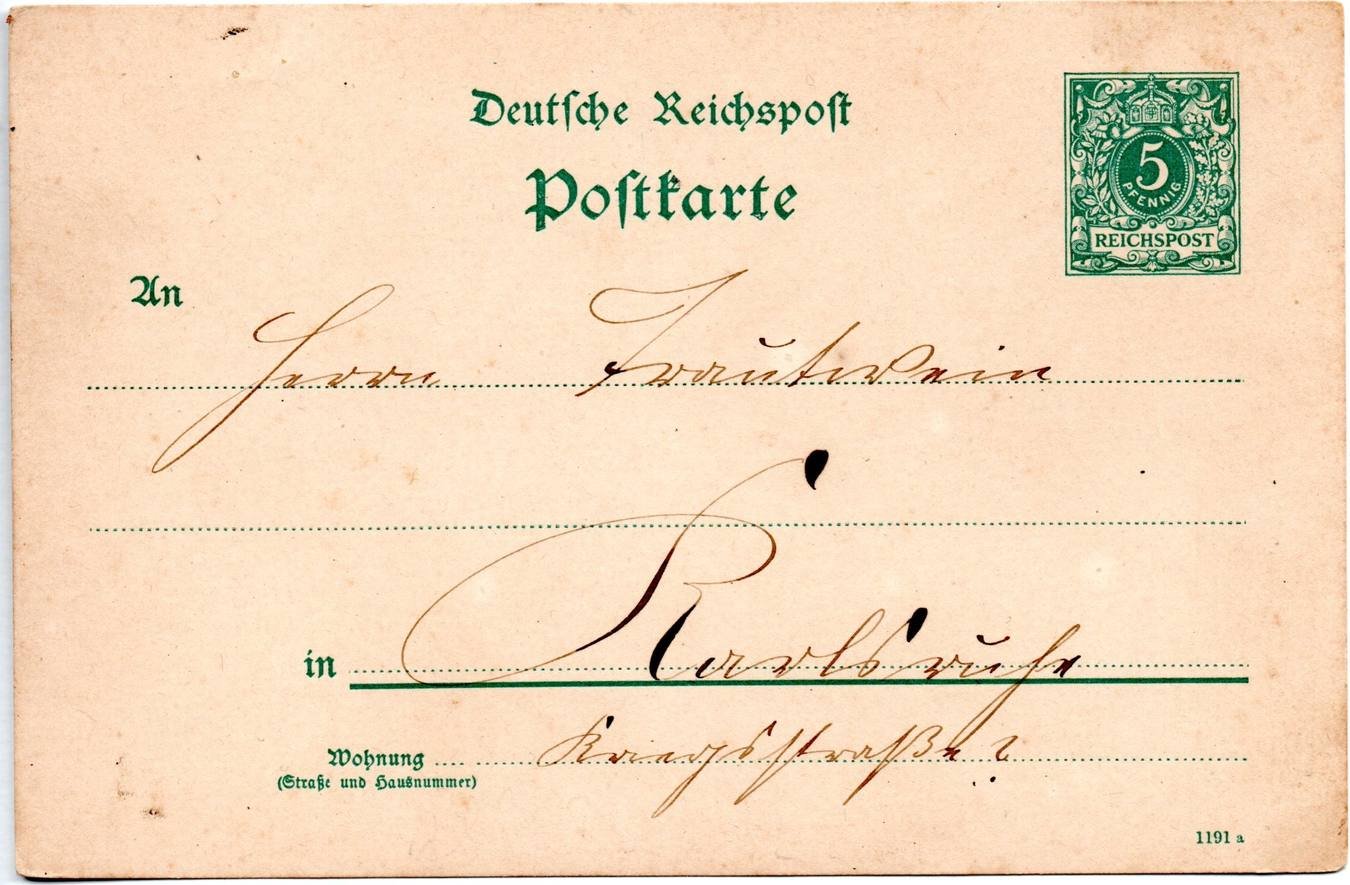 Deutsche Reichspost
Postkarte
5
PFENNIG
REICHSPOST
An
Herrn Trautwein
in Karlsruhe
Wohnung Kriegsstraße ?
(Straße und Hausnummer)
1191 a